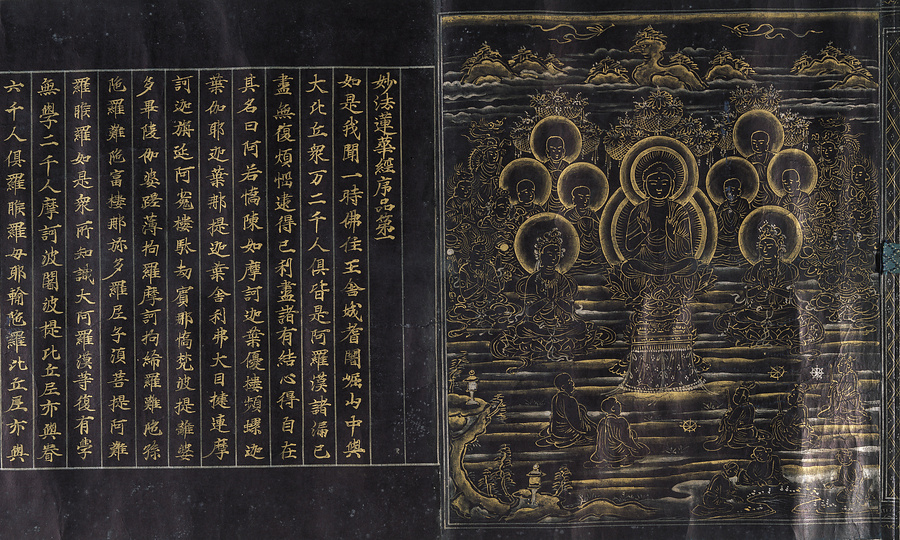 妙法蓮華經序品第一
如是我聞一時佛住王舍城耆闍崛山中與
大比丘衆万二千人俱皆是阿羅漢諸漏已
盡無復煩惱逮得己利盡諸有結心得自在
其名曰阿若憍陳如摩訶迦葉優樓頻螺迦
葉伽耶迦葉那提迦葉舍利弗大目揵連摩
訶迦旃延阿㝹樓馱劫賓那憍梵波提離婆
多畢陵伽婆蹉薄拘羅摩訶拘絺羅難陁孫
陁羅難陁富樓那弥多羅尼子湏菩提阿難
羅睺羅如是衆所知識大阿羅漢等復有學
無學二千人摩訶波闍波提比丘尼亦與眷
六千人俱羅睺羅母耶輸陁羅比丘尼亦與